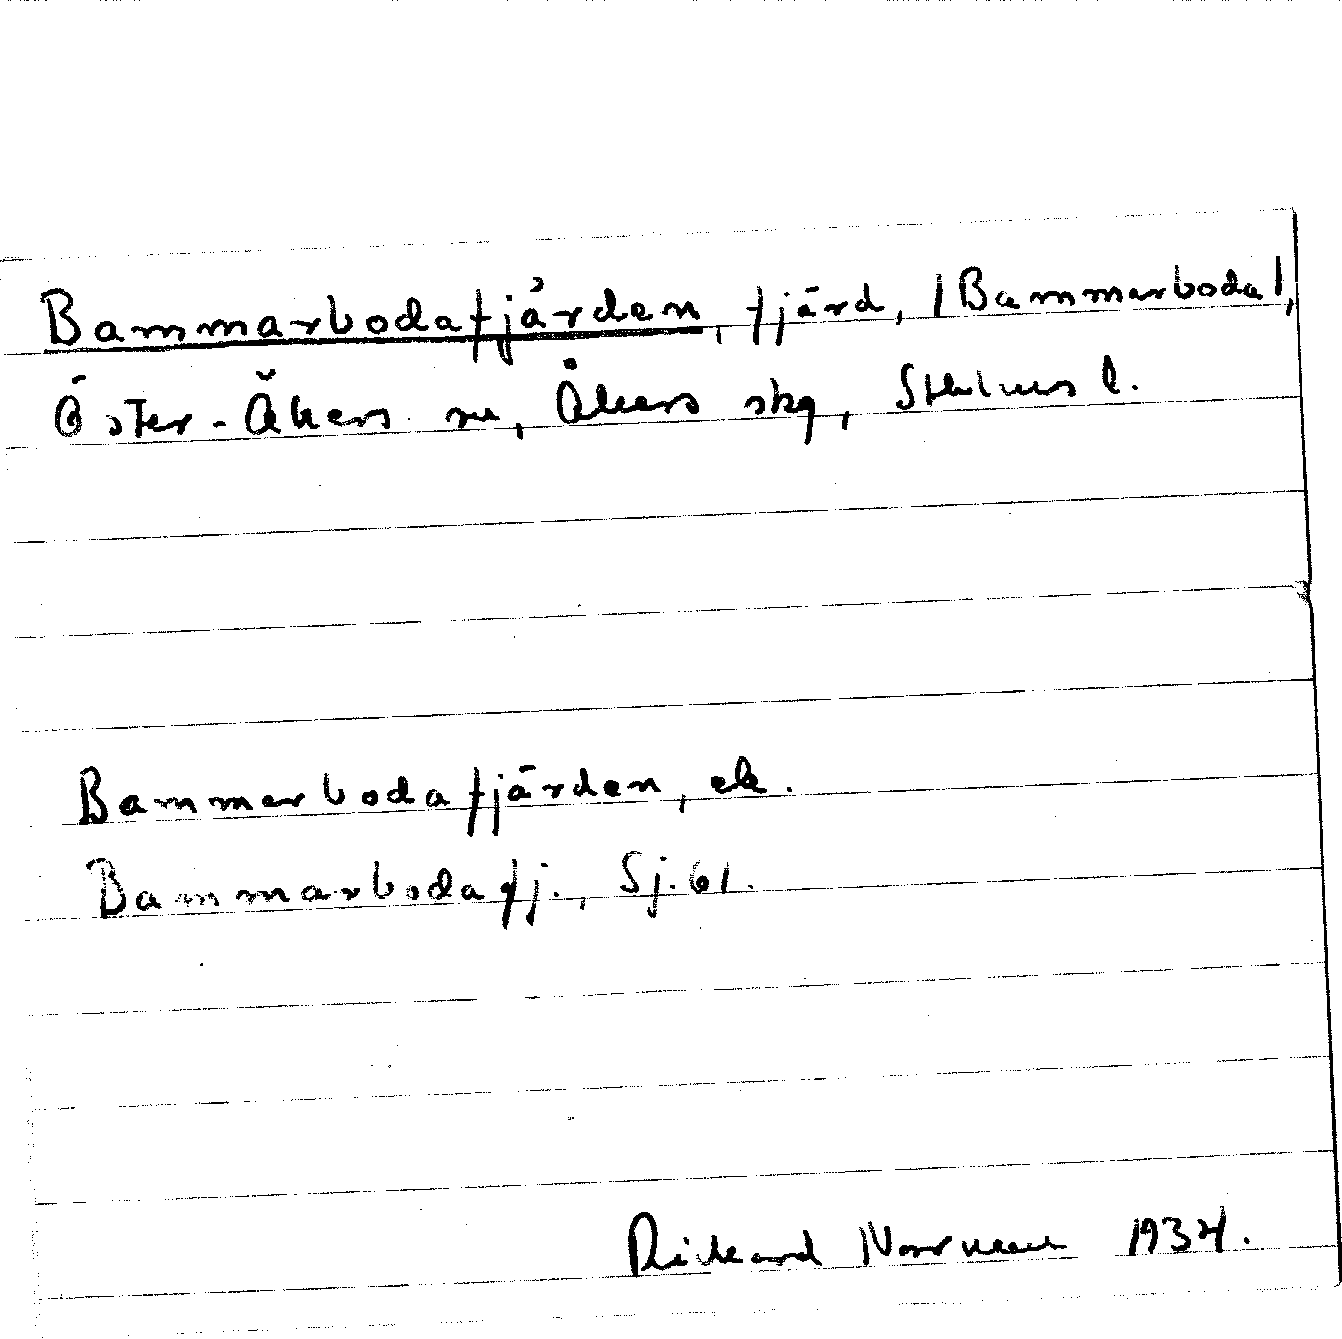 Bammarbodafjärden, fjärd, /Bammarboda/,
Öster-Åkers sn, Åkers skg, Sthlms l.
Bammarbodafjärden, ek.
Bammarbodafj., Sj. 61.
Rickard Norrman 1934.